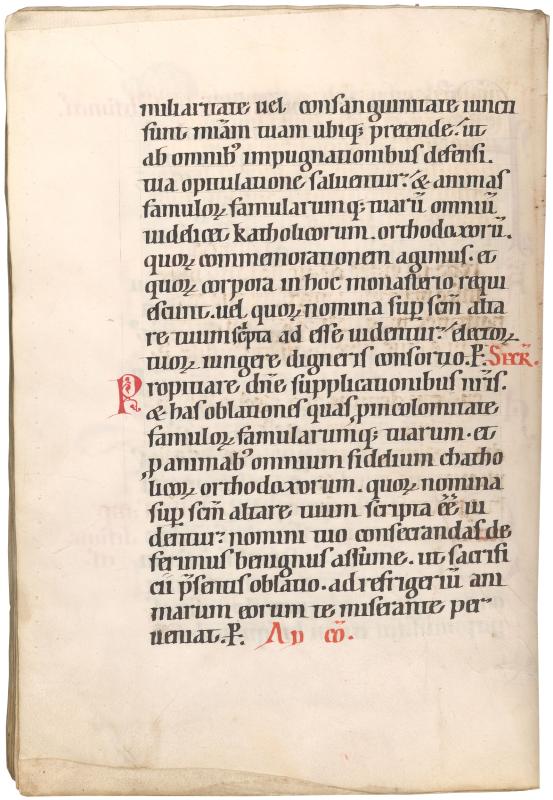 miliaritate uel consanguinitate iuncti
sunt miam̄ tuam ubiq; pretende. ut
ab omnib' impugnationibus defensi.
tua opitulatione saluentur. & animas
famuloꝝ famularumq; tuarū omniū
uidelicet katholicorum. orthodoxorū.
quoꝝ commemorationem agimus. et
quoꝝ corpora in hoc monasterio requi
escunt. uel quoꝝ nomina sup̄ scm̄ alta
re tuum sc̄pta ad esse uidentur. electoꝝ
tuoꝝ iungere digneris consortio. P. Secr̄.
Propitiare dn̄e supplicationibus nr̄is.
& has oblationes quas ꝓ incolomitate
famuloꝝ famularumq; tuarum. et
ꝓ animab' omnium fidelium catho
licoꝝ orthodoxorum. quoꝝ nomina
sup̄ scm̄ altare tuum scripta ēē ui
dentur. nomini tuo consecrandas de
ferimus benignus assume. ut sacrifi
cii p̄sentis oblatio. ad refrigeriū ani
marum eorum te miserante per
ueniat. P. Ad cō.